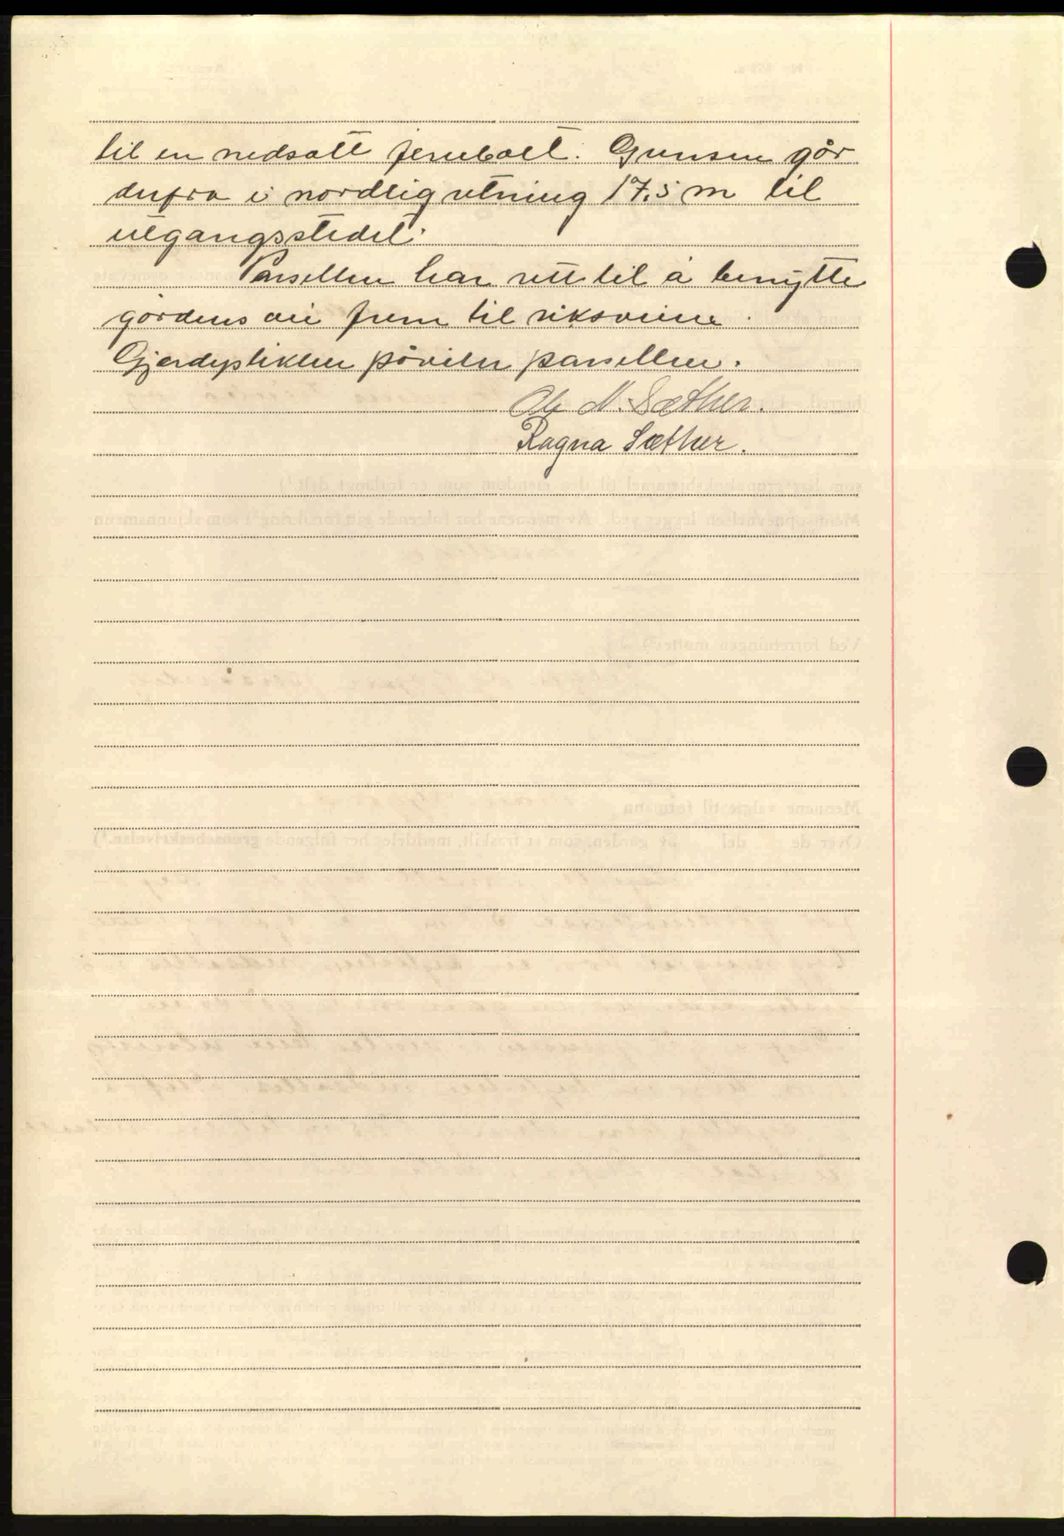 til en nedsatt jernbolt. Grensen går
derfra i nordlig retning 17.5 m til
utgangsstedet.
Parsellen har rett til å benytte
gårdens vei frem til riksveien.
Gjerdeplikten påviler parsellen.
Ole N. Sæther.
Ragna Sæther.